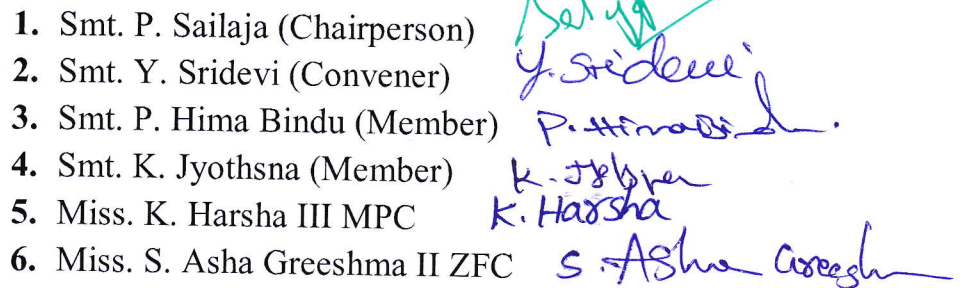 1. Smt. P. Sailaja (Chairperson)
2. Smt. Y. Sridevi (Convener) Y. Sridevi
3. Smt. P. Hima Bindu (Member) P. Hima Bindu
4. Smt. K. Jyothsna (Member) K.
5. Miss. K. Harsha III MPC K. Harsha
6. Miss. S. Asha Greeshma II ZFC S. Asha